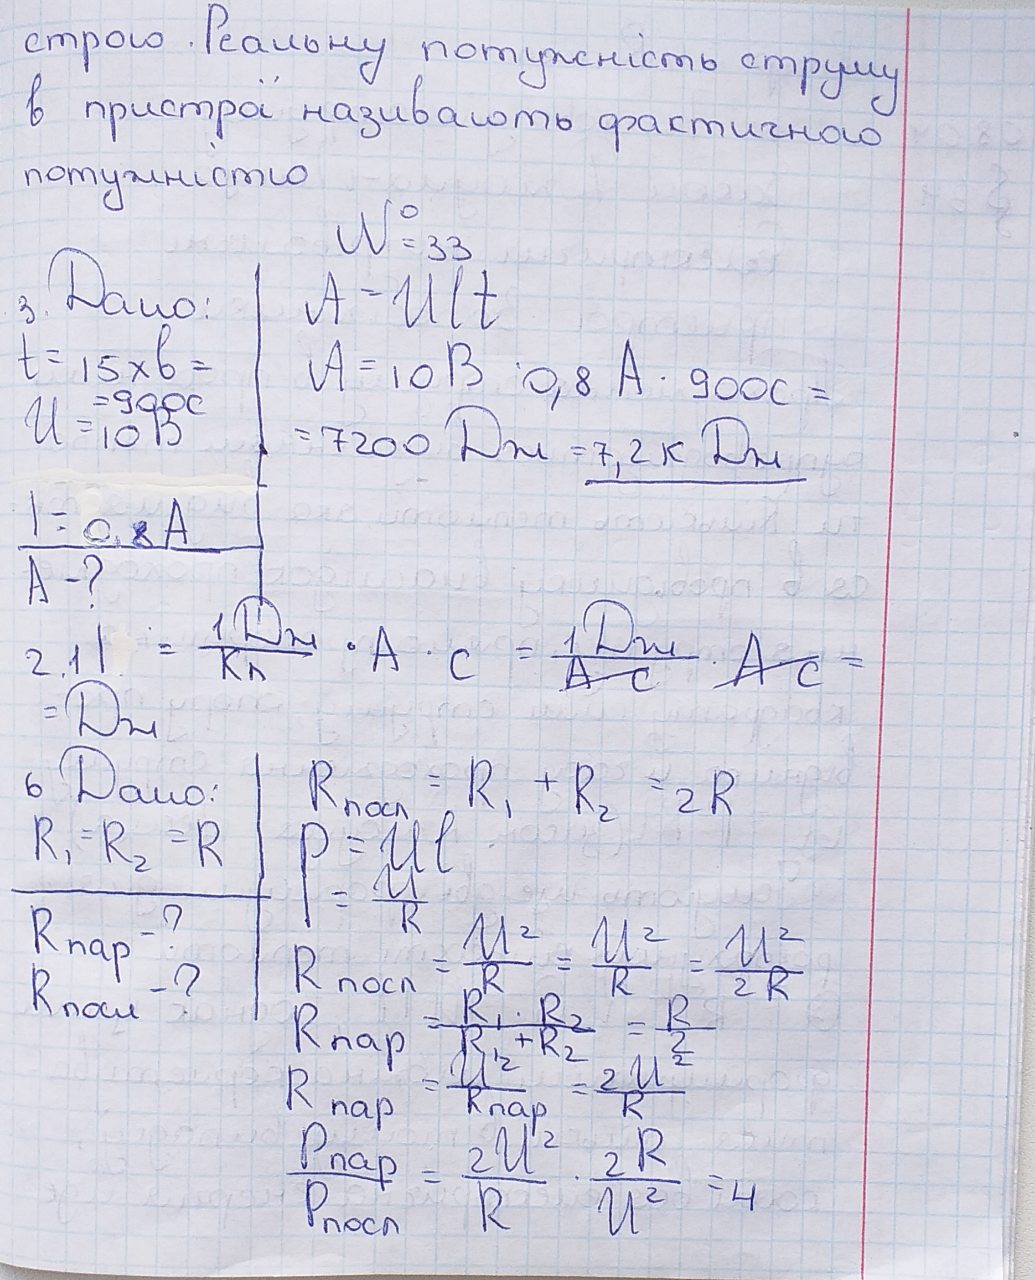 строю. Реальну потужність струму
в пристрої називають фактичною
потужністю
№ 33
3. Дано:
t = 15хв =
= 900с
U = 10В
I = 0,8А
A - ?
A = UIt
A = 10В · 0,8А · 900с =
= 7200 Дж = 7,2 кДж
= 1Дж/Кл · А · с = 1Дж/А с А с =
= Дж
6 Дано:
R₁ = R₂ = R
Rпар - ?
Rпосл - ?
Rпосл = R₁ + R₂ = 2R
P = UI
= U/R
Rпосл = U²/R = U²/R = U²/2R
Rпар = R₁ · R₂/R₁ + R₂ = R/2
Rпар = U²/Rпар = 2U²/R
Pпар/Pпосл = 2U²/R · 2R/U² = 4